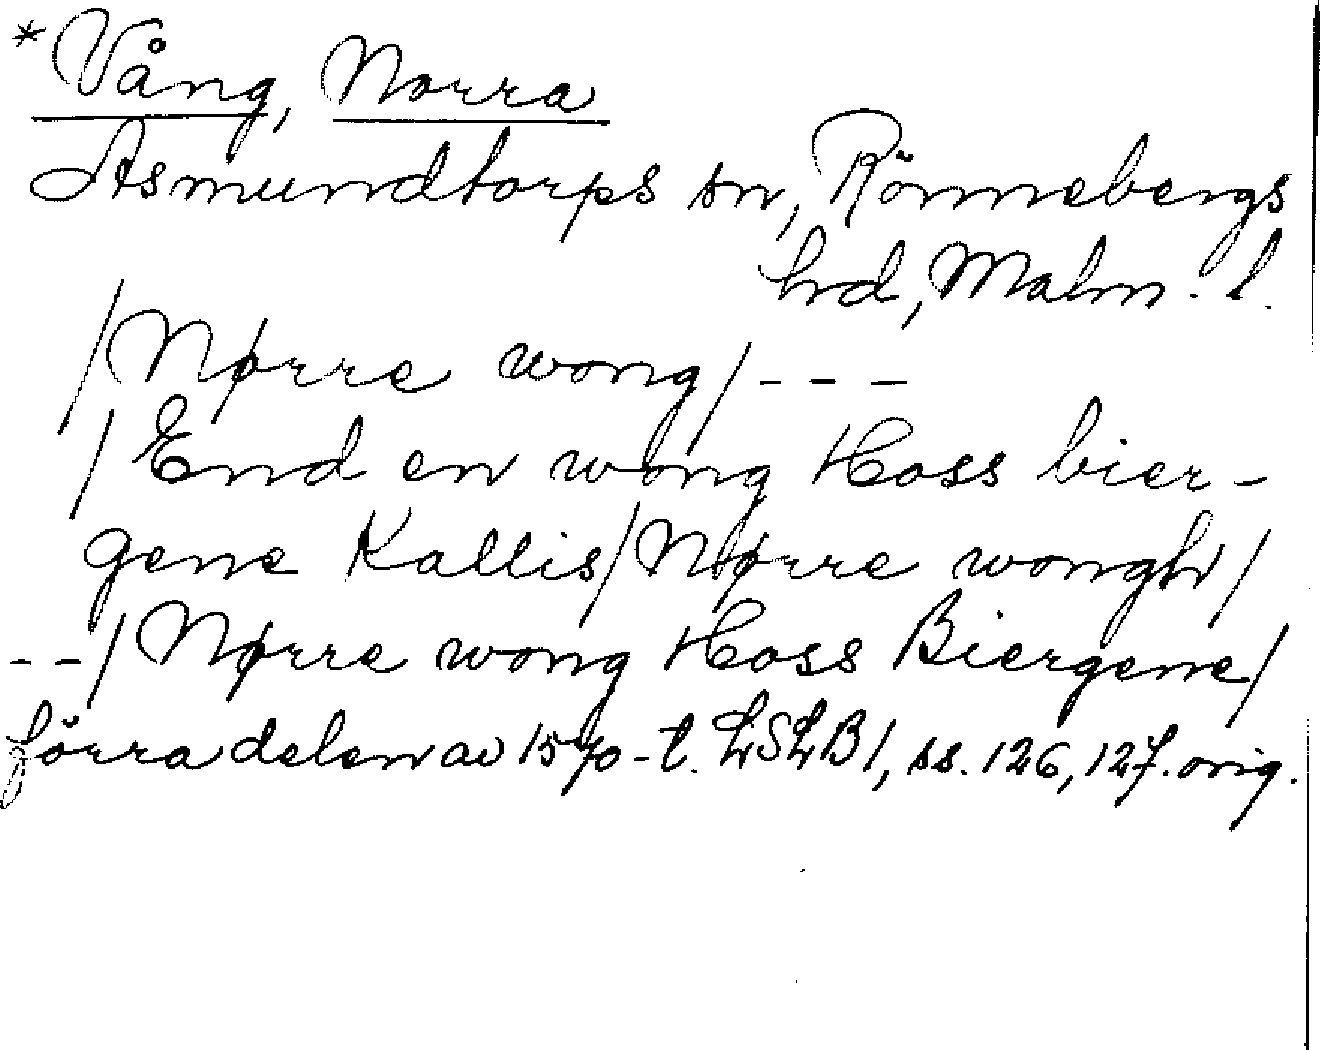 *Vång, Norra
Asmundtorps sn, Rönnebergs
hrd, Malm. l.
/Nørre wong/ - - -
/End en wong Hoss bier-
gene Kallis/Nørre wongh/
- -/Nørre wong Hoss Biergene/
förra delen av 1570-t. LSLB1, ss. 126, 127. orig.